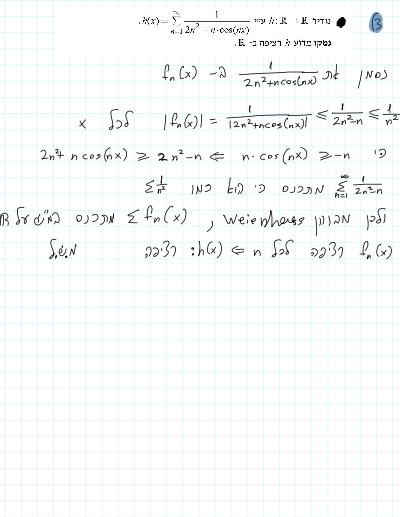 ③ נגדיר h : R → R ע״י h(x) = ∑_{n=1}^{∞} 1/(2n² + n·cos(nx)).
נמקו מדוע h רציפה ב- R.
נסמן את 1/(2n²+ncos(nx)) ב- f_n(x)
|f_n(x)| = 1/|2n²+ncos(nx)| ≤ 1/(2n²-n) ≤ 1/n² לכל x
כי n·cos(nx) ≥ -n ⇐ 2n²+ n cos(nx) ≥ 2n²-n
∑_{n=1}^{∞} 1/(2n²-n) מתכנס כי הוא כמו ∑ 1/n²
ולכן מבוחן Weierstrass, ∑f_n(x) מתכנס במ״ש על R
f_n(x) רציפה לכל n ⇐ h(x) רציפה מש״ל